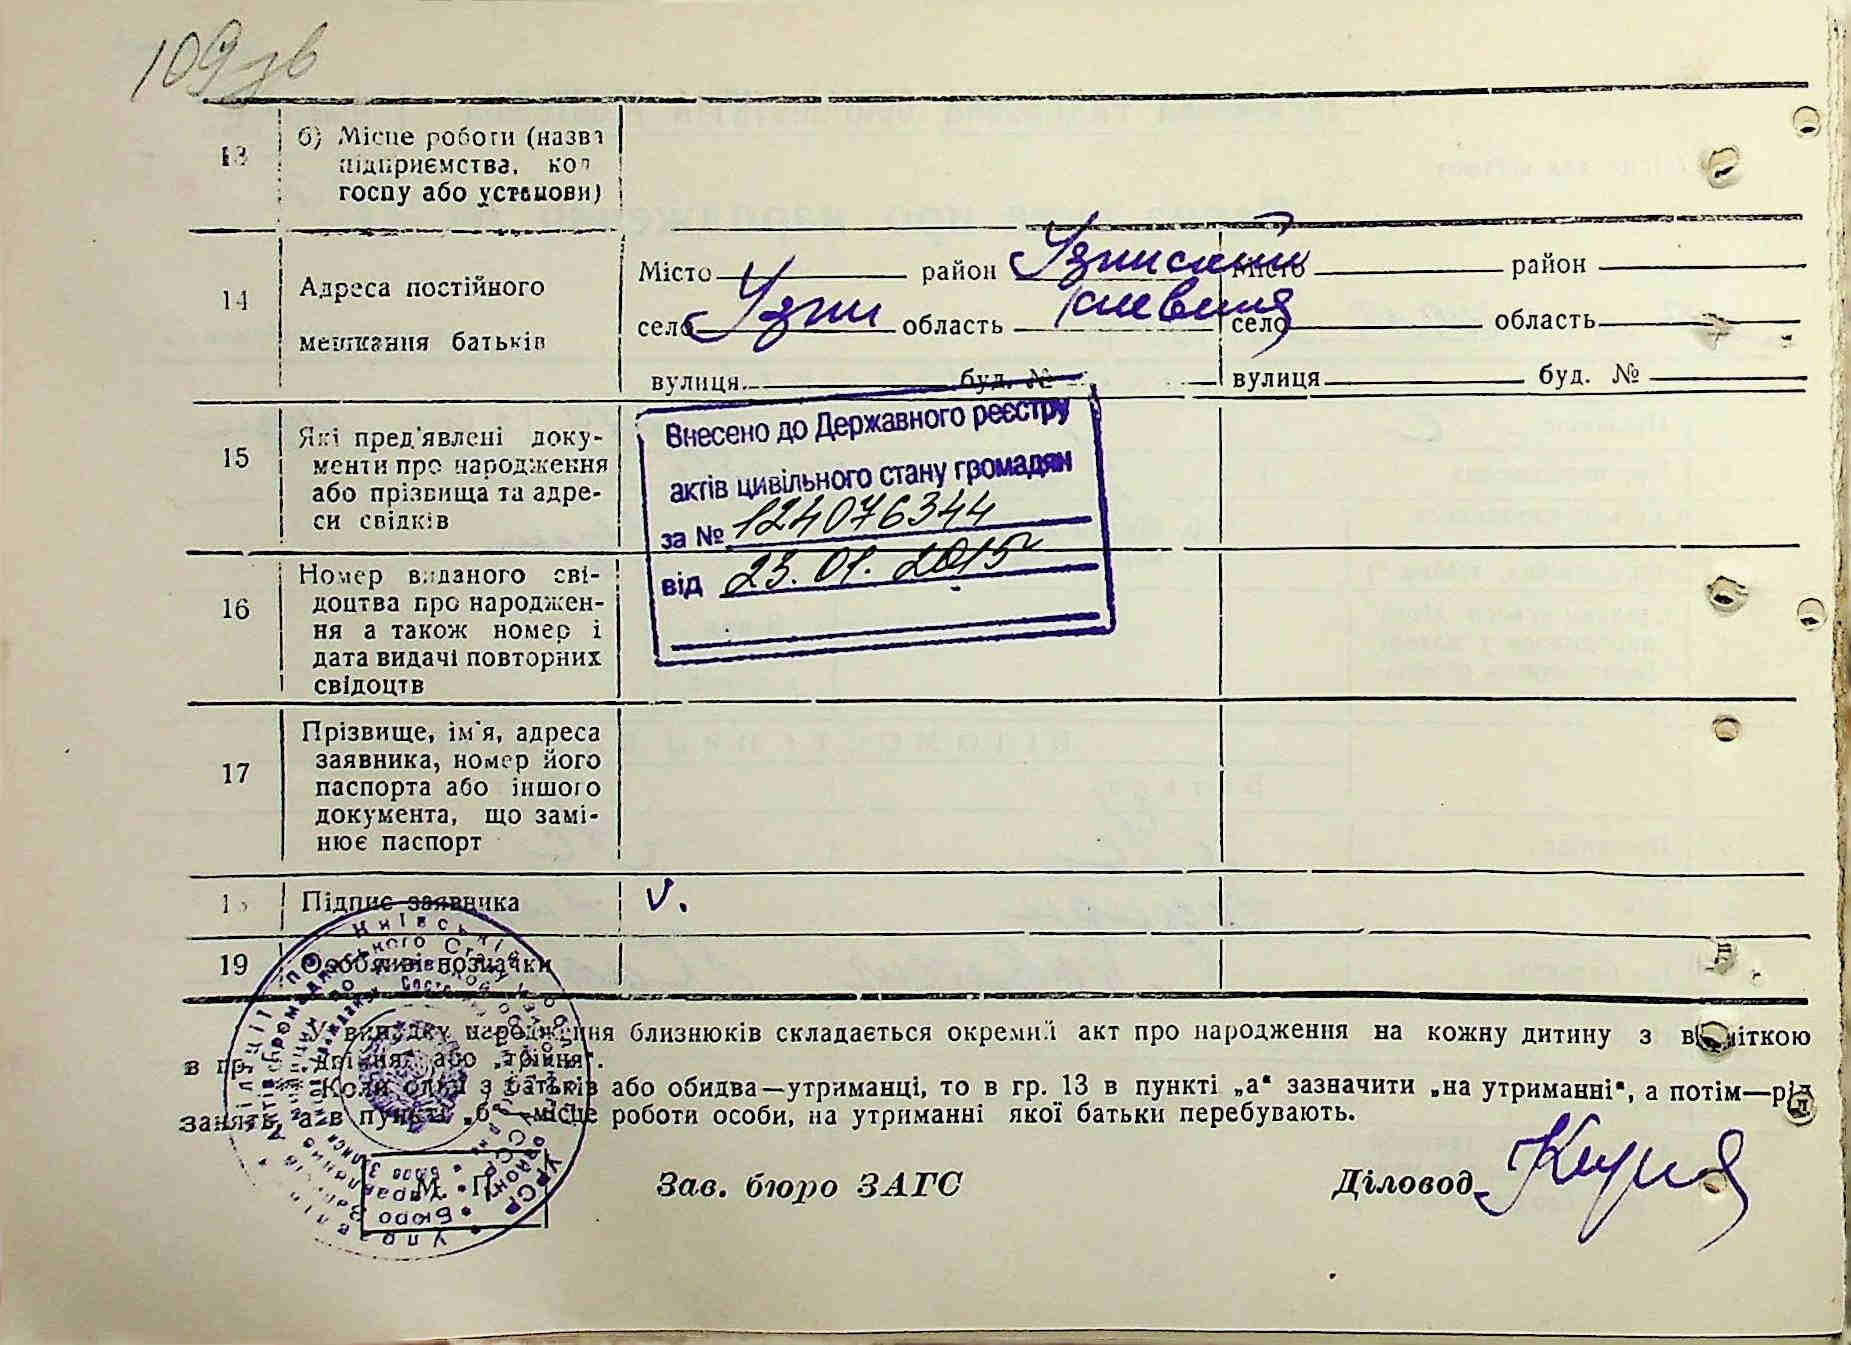 109 зв
13 б) Місце роботи (назва
підприємства, кол
госпу або установи)
14 Адреса постійного
мешкання батьків
Місто район Узинський
село Узин область Київська
вулиця буд. №
Місто район
село область
вулиця буд. №
15 Які пред'явлені доку-
менти про народження
або прізвища та адре-
си свідків
Внесено до Державного реєстру
актів цивільного стану громадян
за № 124076344
від 23.01.2015
16 Номер виданого сві-
доцтва про народжен-
ня а також номер і
дата видачі повторних
свідоцтв
17 Прізвище, ім'я, адреса
заявника, номер його
паспорта або іншого
документа, що замі-
нює паспорт
18 Підпис заявника
v.
19 Особливі позначки
У випадку народження близнюків складається окремий акт про народження на кожну дитину з відміткою
в гр. „двійня" або „трійня".
Коли один з батьків або обидва—утриманці, то в гр. 13 в пункті „а" зазначити „на утриманні", а потім—рід
занять, а в пункті „б"—місце роботи особи, на утриманні якої батьки перебувають.
М. П.
Зав. бюро ЗАГС
Діловод